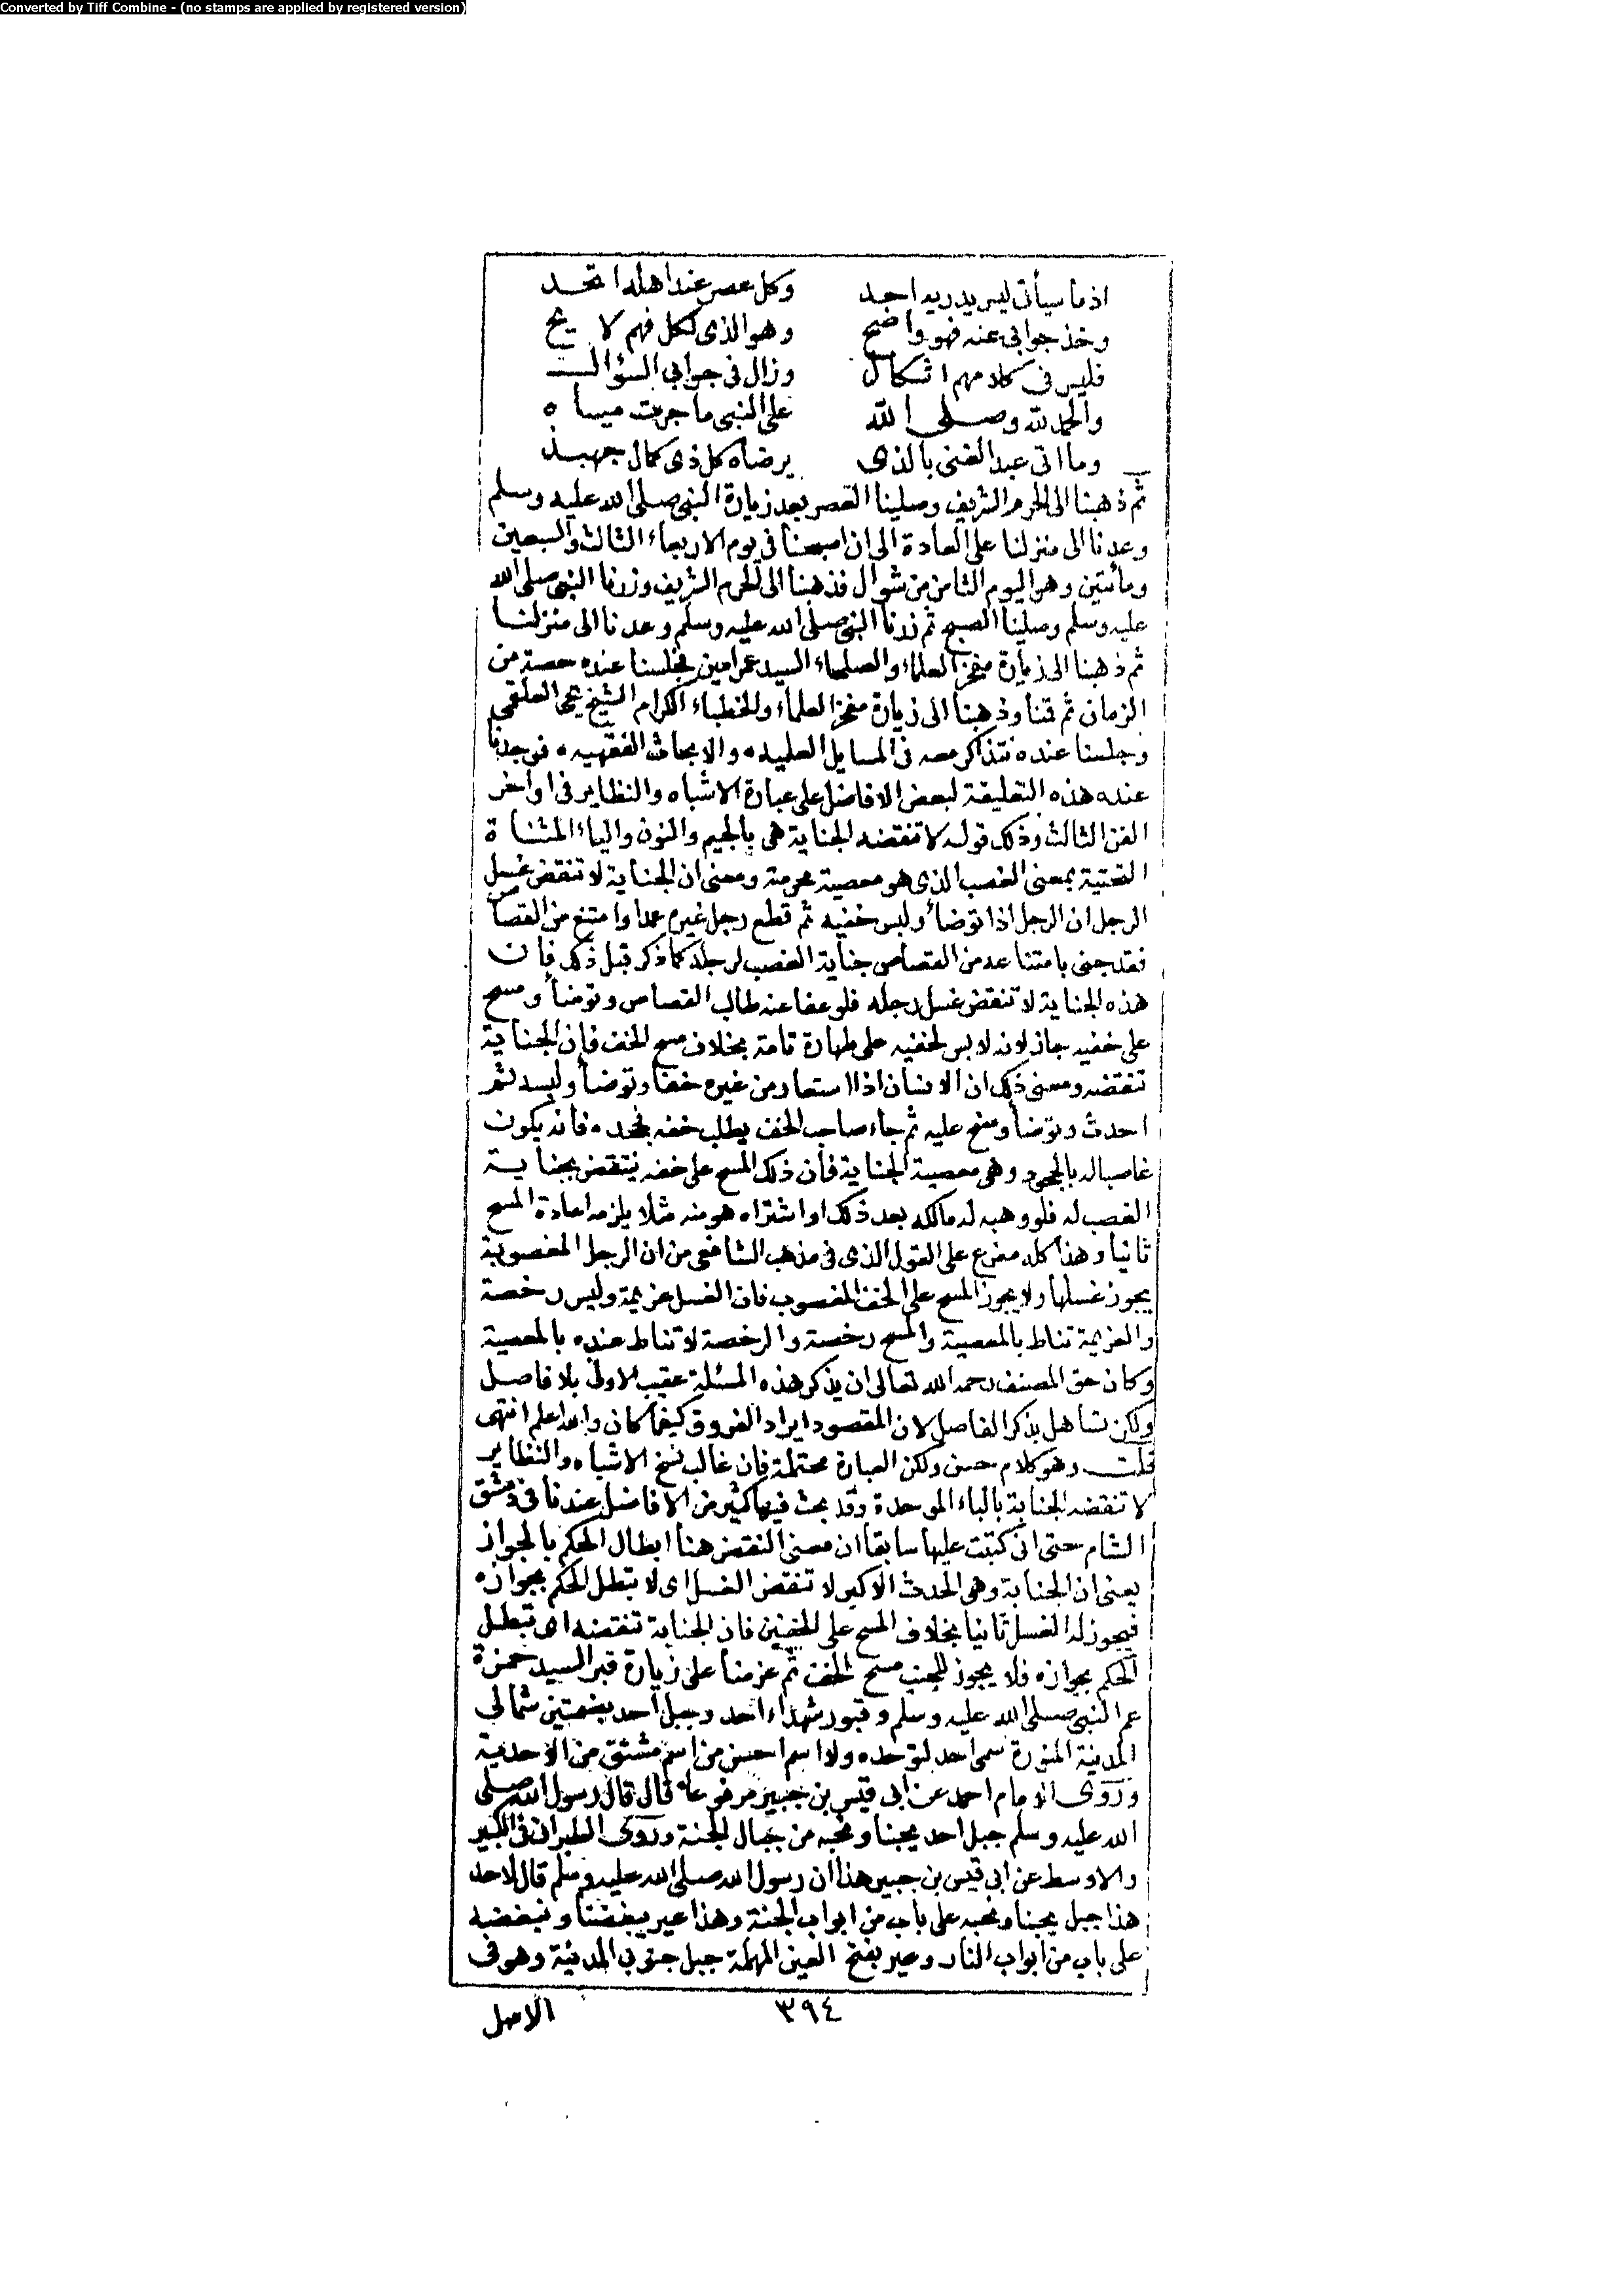 Converted by Tiff Combine - (no stamps are applied by registered version)
اذ ما سيأتى ليس يدريه احد وكل عصر عند اهله اتحد
وخذ جوابى عنه فهو واضح وهو الذى لكل فهم لايح
فليس فى كلامهم اشكال وزال فى جوابى السؤال
والحمد لله وصلى الله على النبى ما جرت مياه
وما اتى عبد الغنى بالذى يرضاه كل ذى كمال جهبذ
ثم ذهبنا الى الحرم الشريف وصلينا العصر بعد زيارة النبى صلى الله عليه وسلم
وعدنا الى منزلنا على العادة الى ان اصبحنا فى يوم الاربعاء الثالث والسبعين
ومأتين وهو اليوم الثامن من شوال فذهبنا الى الحرم الشريف وزرنا النبى صلى الله
عليه وسلم وصلينا الصبح ثم زرنا النبى صلى الله عليه وسلم وعدنا الى منزلنا
ثم ذهبنا الى زيارة مفخر العلماء والصلحاء السيد عمر امين فجلسنا عنده حصة من
الزمان ثم قمنا وذهبنا الى زيارة مفخر العلماء والخطباء الكرام الشيخ يحيى العلقمى
وجلسنا عنده نتذاكر معه فى المسايل العلميه والابحاث الفقهيه فوجدنا
عنده هذه التعليقة لبعض الافاضل على عبارة الاشباه والنظاير فى اواخر
الفن الثالث وذلك قوله لا تنقضه الجناية هى بالجيم والنون والياء المثناة
التحتية بمعنى الغصب الذى هو معصية محرمة ومعنى ان الجناية لا تنقض غسل
الرجل ان الرجل اذا توضأ ولبس خفيه ثم قطع رجل غيره عمدا وامتنع من القصاص
فقد جنى بامتناعه من القصاص جناية الغصب لرجله كما ذكر قبل ذلك فان
هذه الجناية لا تنقض غسل رجله فلو عفا عنه طالب القصاص وتوضأ ومسح
على خفيه جاز لانه لابس لخفيه على طهارة تامة بخلاف مسح الخف فان الجناية
تنقضه ومعنى ذلك ان الانسان اذا استعار من غيره خفا وتوضأ ولبسه ثم
احدث وتوضأ ومسح عليه ثم جاء صاحب الخف يطلب خفه فجحده فانه يكون
غاصبا له بالجحود وهى معصية الجناية فان ذلك المسح على خفه ينتقض بجناية
الغصب له فلو وهبه له مالكه بعد ذلك او اشتراه هو منه مثلا يلزمه اعادة المسح
ثانيا وهذا كله مفرع على القول الذى فى مذهب الشافعى من ان الرجل المغصوبة
يجوز غسلها ولا يجوز المسح على الخف المغصوب فان الغسل عزيمة وليس رخصة
والعزيمة تناط بالمعصية والمسح رخصة والرخصة لا تناط عنده بالمعصية
وكان حق المصنف رحمه الله تعالى ان يذكر هذه المسئلة عقيب الاولى بلا فاصل
ولكن تساهل بذكر الفاصل لان المقصود ايراد الفروق كيفما كان والله اعلم انتهى
قلت وهو كلام حسن ولكن العبارة محتملة فان غالب نسخ الاشباه والنظاير
لا تنقضه الجنابة بالباء الموحدة وقد بحث فيها كثير من الافاضل عندنا فى دمشق
الشام حتى انى كتبت عليها سابقا ان معنى النقض هنا ابطال الحكم بالجواز
يعنى ان الجنابة وهى الحدث الاكبر لا تنقض الغسل اى لا يتطل الحكم بجوازه
فيجوز له الغسل ثانيا بخلاف المسح على الخفين فان الجنابة تنقضه اى تبطل
الحكم بجوازه فلا يجوز للجنب مسح الخف ثم عزمنا على زيارة قبر السيد حمزة
عم النبى صلى الله عليه وسلم وقبور شهداء احد وجبل احد بضمتين شمالى
المدينة المنورة سمى احد لتوحده ولا اسم احسن من اسم مشتق من الاحدية
وروى الامام احمد عن ابى قيس بن جبير مرفوعا قال قال رسول الله صلى
الله عليه وسلم جبل احد يحبنا ونحبه من جبال الجنة وروى الطبرانى فى الكبير
والاوسط عن ابى قيس بن جبير هذا ان رسول الله صلى الله عليه وسلم قال لاحد
هذا جبل يحبنا ونحبه على باب من ابواب الجنة وهذا عير يبغضنا ونبغضه
على باب من ابواب النار وعير بفتح العين المهملة جبل جنوبى المدينة وهو فى
٣٩٤
الاصل